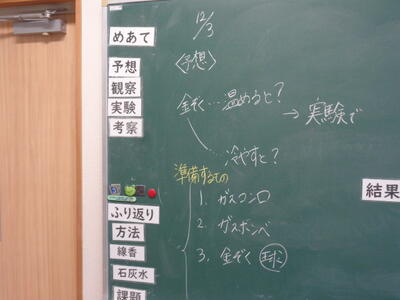 めあて
予想
観察
実験
考察
ふり返り
方法
線香
石灰水
課題
12/3
〈予想〉
金ぞく…温めると？
→実験で
…冷やすと？
準備するもの
1. ガスコンロ
2. ガスボンベ
3. 金ぞく 球
結果